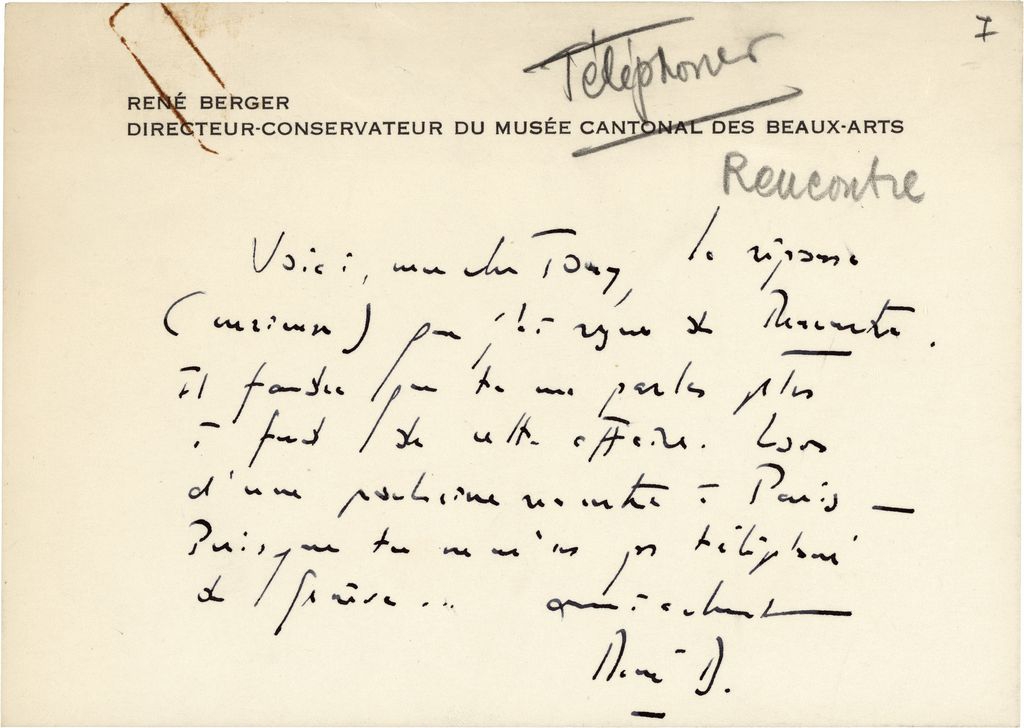 7
Téléphoner
RENÉ BERGER
DIRECTEUR-CONSERVATEUR DU MUSÉE CANTONAL DES BEAUX-ARTS
Rencontre
Voici, mon cher Tony, la réponse
(curieuse) que j'ai reçue de Rencontre.
Il faudra que tu me parles plus
à fond de cette affaire. Lors
d'une prochaine rencontre à Paris –
Puisque tu ne m'as pas téléphoné
de Genève ... amicalement
René B.